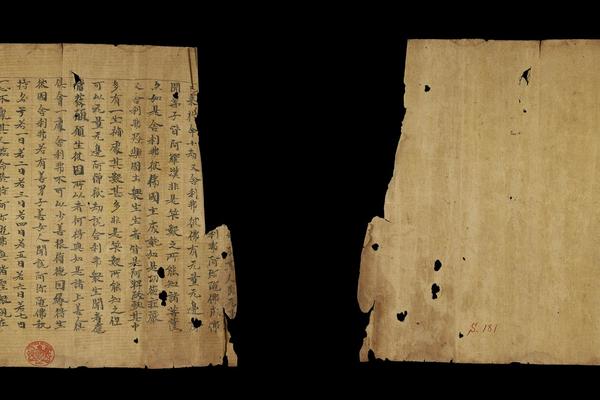 利弗阿弥陀佛成佛
又舍利弗彼佛有无量无邊
聞弟子皆阿羅漢非是筭數之所能知諸菩薩
亦如是舍利弗彼佛國土成就如是功德莊嚴
又舍利弗極樂國土衆生生者皆是阿鞞跋致其中
多有一生補處其數甚多非是筭數所能知之但
可以无量无邊阿僧祇劫說舍利弗衆生聞者應
當發願願生彼國所以者何得與如是諸上善人
俱會一處舍利弗不可以少善根福德因緣得生
彼國舍利弗若有善男子善女人聞說阿弥陀佛執
持名号若一日若二日若三日若四日若五日若六日若七日
一心不亂其人臨命終時阿弥陀佛與諸聖衆現在
S. 181